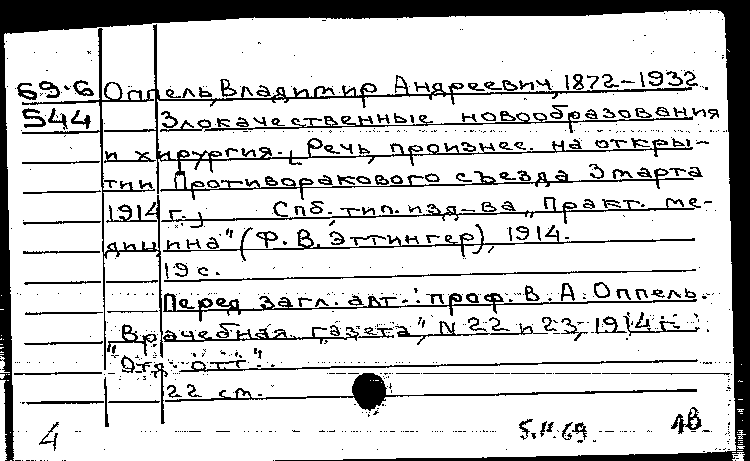 69.6 Оппель, Владимир Андреевич, 1872-1932.
544 Злокачественные новообразования
и хирургия. [Речь, произнес. на откры-
тии Противоракового съезда 3 марта
1914 г.] Спб. тип. изд-ва „Практ. ме-
дицина" (Ф. В. Эттингер), 1914.
19 с.
Перед загл. авт.: проф. В. А. Оппель.
„Врачебная газета", N 22 и 23, 1914 г.
"Отд. отт".
22 см.
4 5.II.69.